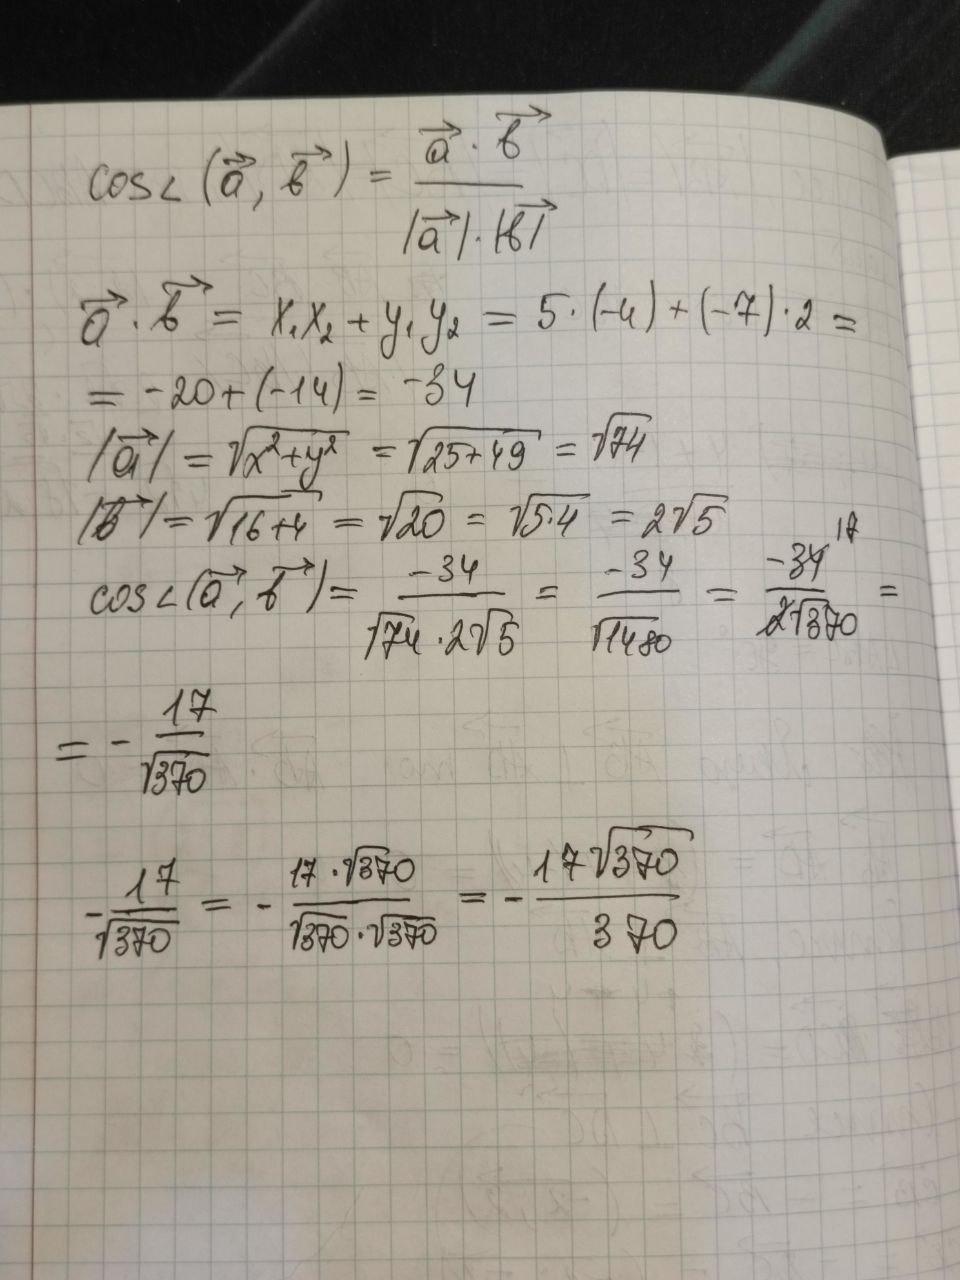 cos∠(a⃗, b⃗) = (a⃗ · b⃗) / (|a⃗| · |b⃗|)
a⃗ · b⃗ = x₁x₂ + y₁y₂ = 5·(-4) + (-7)·2 =
= -20 + (-14) = -34
|a⃗| = √(x²+y²) = √(25+49) = √74
|b⃗| = √(16+4) = √20 = √(5·4) = 2√5
cos∠(a⃗, b⃗) = -34 / (√74 · 2√5) = -34 / √1480 = -34 17 / 2√370 =
= - 17 / √370
- 17 / √370 = - (17 · √370) / (√370 · √370) = - 17√370 / 370